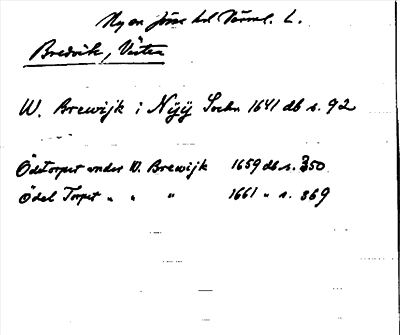 Ny en Jösse hd Värml. L.
Bredvik, Västra
W. Brewijk i Nÿÿ Sochn 1641 db s. 92
Ödetorpet under W. Brewijk 1659 db s. 350
Ödel Torpet " " " 1661 " s. 369